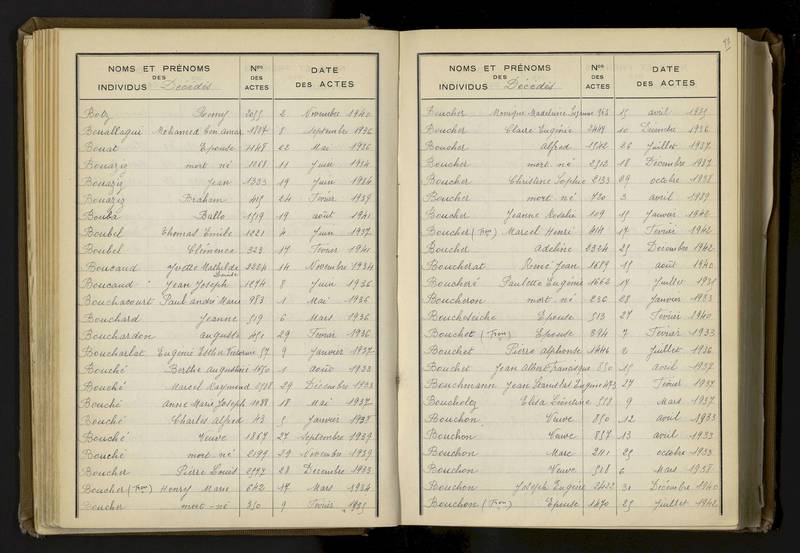 NOMS ET PRÉNOMS
DES
INDIVIDUS Décédés
Nos
DES
ACTES
DATE
DES ACTES
Botz Remy 2 Novembre 1940
Bouallagui Mohamed ben amar 8 septembre 1936
Bouat Epouse 1148 22 Mai 1936
Bouaziz mort né 1268 11 Juin 1934
Bouaziz Jean 1333 19 Juin 1934
Bouaziz Braham 415 24 Février 1939
Bouba Ballo 1519 19 août 1941
Boubel Thomas Emile 1021 4 Juin 1937
Boubel Clémence 323 17 Février 1941
Boucaud Yvette Mathilde Denise 2224 14 Novembre 1934
Boucaud Jean Joseph 1274 8 Juin 1936
Bouchacourt Paul andré Marie 983 1 Mai 1936
Bouchard Jeanne 519 6 Mars 1936
Bouchardon auguste 451 29 Février 1936
Boucharlat Eugénie Esther Victorine 57 9 Janvier 1937
Bouché Berthe augustine 1650 1 août 1933
Bouché Marcel Raymond 2518 29 Décembre 1933
Bouché Anne Marie Joseph 1038 18 Mai 1937
Bouché Charles alfred 43 5 Janvier 1938
Bouché Veuve 1867 27 septembre 1939
Bouché mort né 2199 29 Novembre 1939
Boucher Pierre Louis 28 Decembre 1933
Boucher (Tron) Henry Marie 642 17 Mars 1934
Boucher mort-né 350 9 Février 1935
NOMS ET PRÉNOMS
DES
INDIVIDUS Décédés
Nos
DES
ACTES
DATE
DES ACTES
Boucher Monique Madeleine Suzanne 963 15 avril 1935
Boucher Claire Eugénie 2449 10 Décembre 1936
Boucher Alfred 1342 26 Juillet 1937
Boucher mort né 2313 18 Décembre 1937
Boucher Christine Sophie 2133 29 octobre 1938
Boucher mort né 720 3 avril 1939
Boucher Jeanne Rosalie 109 15 Janvier 1942
Boucher (Tron) Marcel Henri 414 17 Février 1942
Boucher Adeline 2324 25 Decembre 1942
Boucherat René Jean 1689 15 août 1940
Boucheré Paulette Eugénie 1662 17 Juillet 1935
Boucheron mort né 236 28 Janvier 1933
Boucheseiche Epouse 513 27 Février 1940
Bouchet (Tron) Epouse 294 7 Février 1933
Bouchet Pierre alphonse 1446 2 Juillet 1936
Bouchet Jean Albert Francisque 850 15 avril 1937
Bouchmann Jean Stanislas Eugène 473 27 Février 1937
Boucholtz Elisa Léontine 558 9 Mars 1937
Bouchon Veuve 850 12 avril 1933
Bouchon Veuve 857 13 avril 1933
Bouchon Marc 2111 25 octobre 1933
Bouchon Veuve 528 6 Mars 1938
Bouchon Joseph Eugène 2422 31 Décembre 1940
Bouchon (Tron) Epouse 1470 25 Juillet 1942